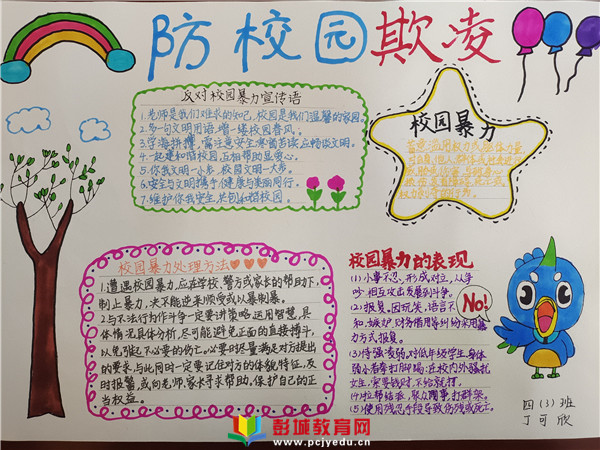 防校园欺凌
反对校园暴力宣传语
1.老师是我们难求的知己,校园是我们温馨的家园。
2.多一句文明用语,增一缕校园春风。
3.学海拼搏,需注意安全,寒窗苦读,点畅谈文明。
4.一起建和谐校园,互相帮助显爱心。
5.你我文明一小步,校园文明一大步。
6.安全与文明携手,健康与美丽同行。
7.维护你我安全,共创和谐校园。
校园暴力
校园暴力处理方法
1.遭遇校园暴力,应在学校、警方或家长的帮助下,
制止暴力,决不能逆来顺受或以暴制暴。
2.与不法行为作斗争一定要讲策略,运用智慧,具
体情况具体分析,尽可能避免正面的直接搏斗,
以免造成不必要的伤亡。必要时尽量满足对方提出
的要求,与此同时一定要记住对方的体貌特征,及
时报警,或向老师、家长寻求帮助,保护自己的正
当权益。
校园暴力的表现
(1)小事不忍,形成对立,从争
吵、相互攻击发展到斗争。
(2)报复。因玩笑,语言不
知,嫉妒,财务借用等纠纷采用暴
力方式报复。
(3)恃强凌弱,对低年级学生、身体
弱小者拳打脚踢;在校内外骚扰
女生,索要钱财,不给就打。
(4)拉帮结派,聚众闹事,打群架。
(5)使用残忍手段导致伤残或死亡。
No!
四(3)班
丁可欣
彭城教育网
www.pcjyedu.cn